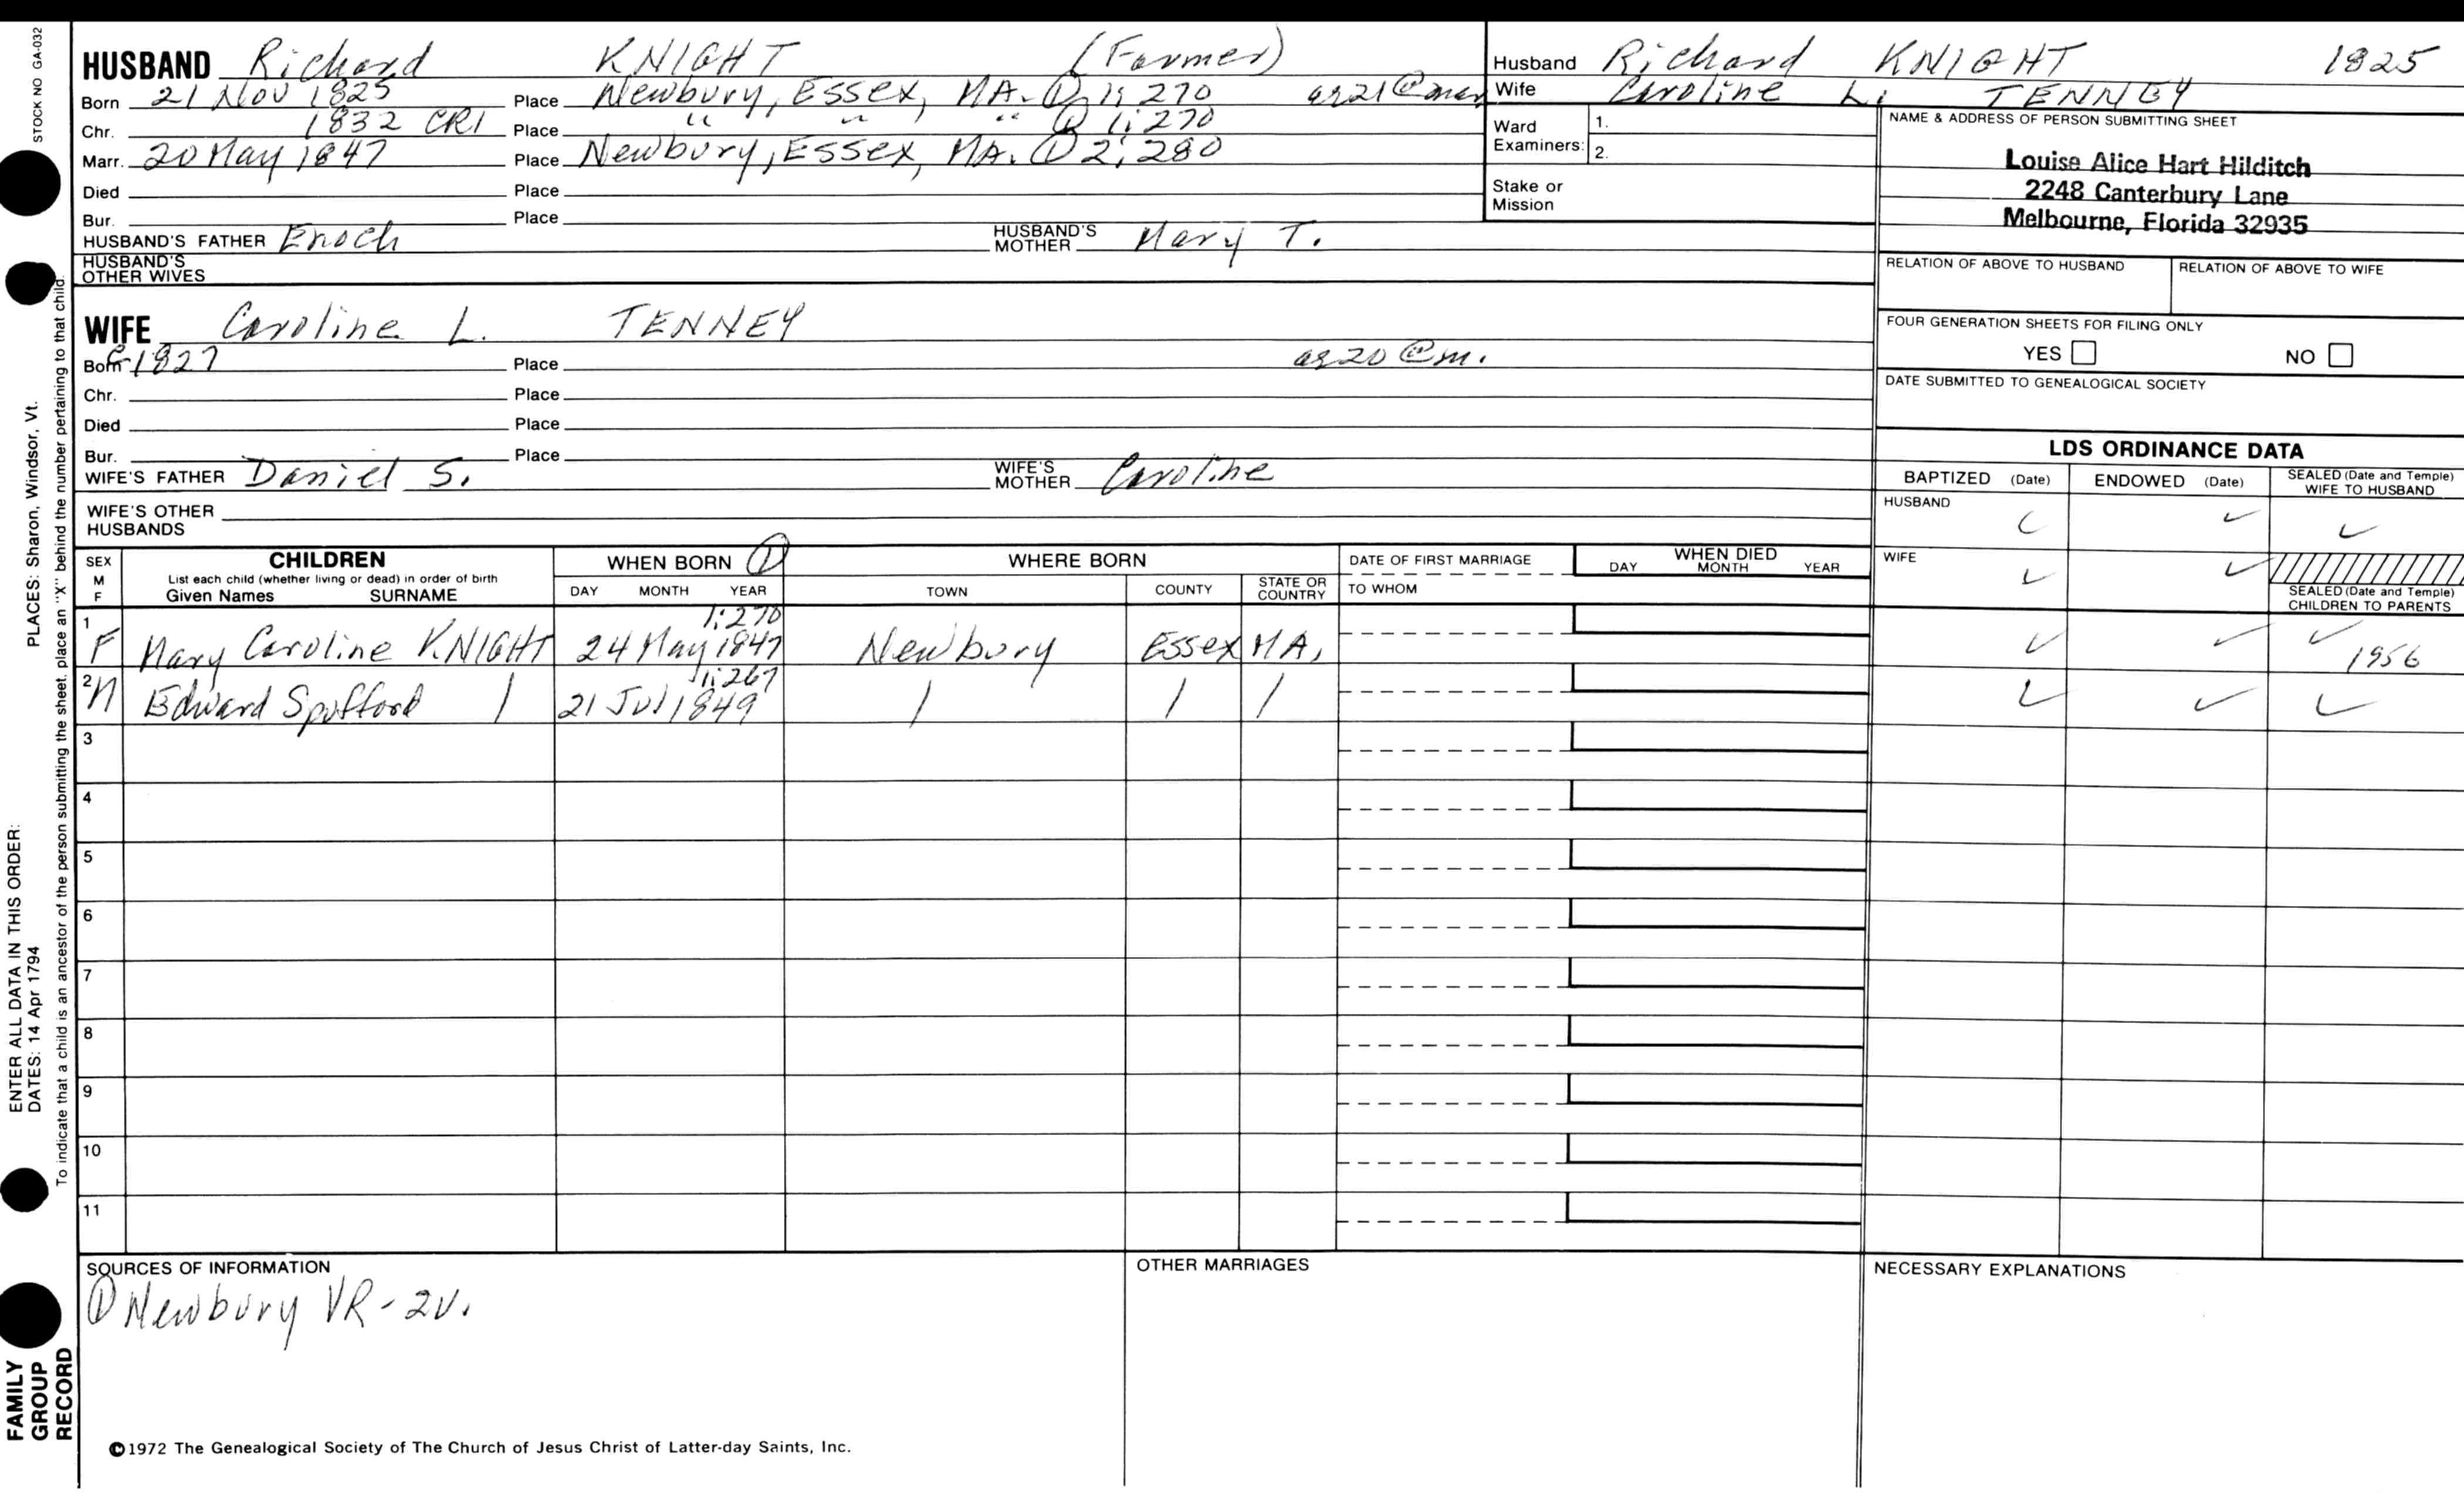 STOCK NO GA-032
HUSBAND Richard KNIGHT (Farmer)
Born 21 Nov 1825 Place Newbury, Essex, MA. ① 1; 270 ag 21 @ mar
Chr. 1832 CR1 Place " " " ① 1; 270
Marr. 20 May 1847 Place Newbury, Essex, MA. ① 2; 280
Died Place
Bur. Place
HUSBAND'S FATHER Enoch HUSBAND'S MOTHER Mary T.
HUSBAND'S
OTHER WIVES
WIFE Caroline L. TENNEY
Born c 1827 Place ag 20 @ m.
Chr. Place
Died Place
Bur. Place
WIFE'S FATHER Daniel S. WIFE'S MOTHER Caroline
WIFE'S OTHER
HUSBANDS
Husband Richard KNIGHT 1825
Wife Caroline L. TENNEY
Ward Examiners: 1.
2.
Stake or
Mission
NAME & ADDRESS OF PERSON SUBMITTING SHEET
Louise Alice Hart Hilditch
2248 Canterbury Lane
Melbourne, Florida 32935
RELATION OF ABOVE TO HUSBAND RELATION OF ABOVE TO WIFE
FOUR GENERATION SHEETS FOR FILING ONLY
YES NO
DATE SUBMITTED TO GENEALOGICAL SOCIETY
LDS ORDINANCE DATA
BAPTIZED (Date) ENDOWED (Date) SEALED (Date and Temple)
WIFE TO HUSBAND
HUSBAND ✓ ✓ ✓
WIFE ✓ ✓
SEALED (Date and Temple)
CHILDREN TO PARENTS
SEX M F CHILDREN WHEN BORN ① WHERE BORN DATE OF FIRST MARRIAGE WHEN DIED
List each child (whether living or dead) in order of birth
Given Names SURNAME DAY MONTH YEAR TOWN COUNTY STATE OR COUNTRY TO WHOM DAY MONTH YEAR
1:270
1 F Mary Caroline KNIGHT 24 May 1847 Newbury Essex MA, ✓ ✓ ✓ 1956
1:267
2 M Edward Spofford | 21 Jul 1849 | | | ✓ ✓ ✓
3
4
5
6
7
8
9
10
11
SOURCES OF INFORMATION OTHER MARRIAGES NECESSARY EXPLANATIONS
① Newbury VR-2v.
©1972 The Genealogical Society of The Church of Jesus Christ of Latter-day Saints, Inc.
PLACES: Sharon, Windsor, Vt.
ENTER ALL DATA IN THIS ORDER:
DATES: 14 Apr 1794
To indicate that a child is an ancestor of the person submitting the sheet, place an "X" behind the number pertaining to that child.
FAMILY
GROUP
RECORD